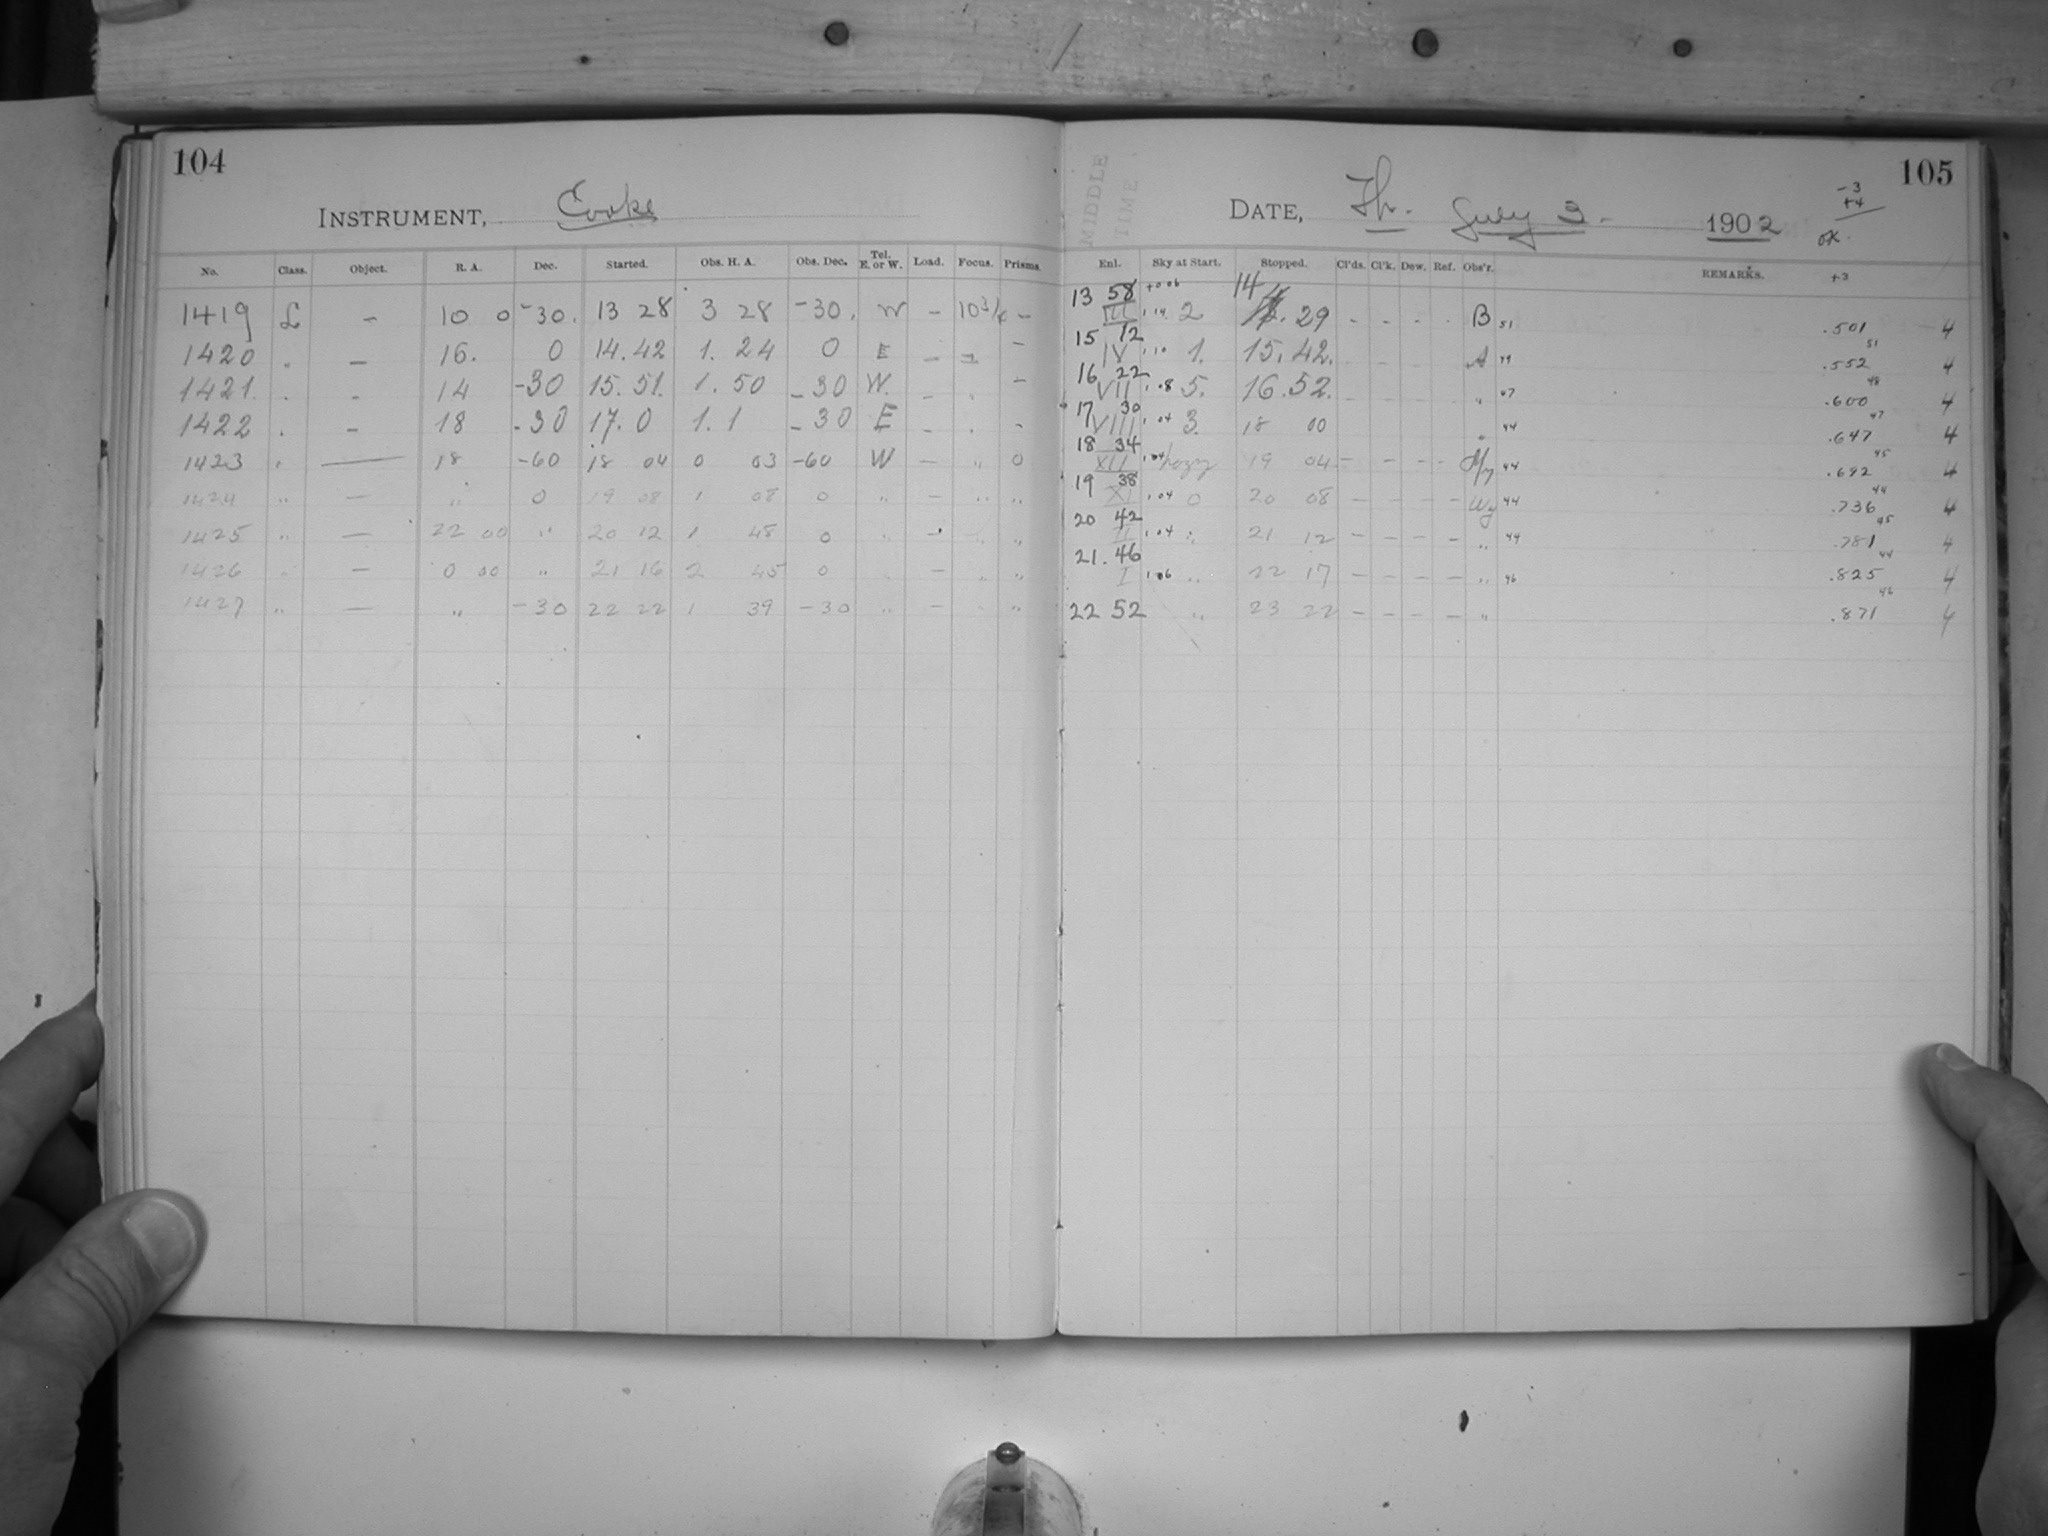 104
INSTRUMENT, Cooke
No. Class. Object. R. A. Dec. Started. Obs. H. A. Obs. Dec. Tel. E. or W. Load. Focus. Prisms.
1419 L - 10 0 -30. 13 28 3 28 -30. W - 10 3/4 -
1420 . - 16. 0 14.42 1. 24 0 E - -
1421. . - 14 -30 15.51. 1. 50 -30 W. - " -
1422 . - 18 -30 17.0 1. 1 -30 E - . -
1423 . — 18 -60 18 04 0 03 -60 W - " 0
1424 " - " 0 19 08 1 08 0 " - " "
1425 " - 22 00 " 20 12 1 48 0 " - " "
1426 " - 0 00 " 21 16 2 45 0 " - " "
1427 " - " -30 22 22 1 39 -30 " - "
105
MIDDLE TIME
DATE, Th. July 3. 1902
-3
+4
OK.
Enl. Sky at Start. Stopped. Cl'ds. Cl'k. Dew. Ref. Obs'r. REMARKS. +3
13 58 +006 14
III 1.14 2 29 - - - . B 51 .501 4
15 12 51
IV 1.10 1. 15.42. - - A 49 .552 4
16 22 48
VII 1.08 5. 16.52. " 47 .600 4
17 30 47
VIII 1.04 3. 18 00 " 44 .647 4
18 34 45
XII 1.04 hazy 19 04 - - - - 44 .692 4
19 38 44
XI 1.04 0 20 08 - - - - Wy 44 .736 4
20 42 45
II 1.04 " 21 12 - - - - " 44 .781 4
21.46 44
I 1.06 " 22 17 - - - - " 46 .825 4
46
22 52 " 23 22 - - - - " .871 4